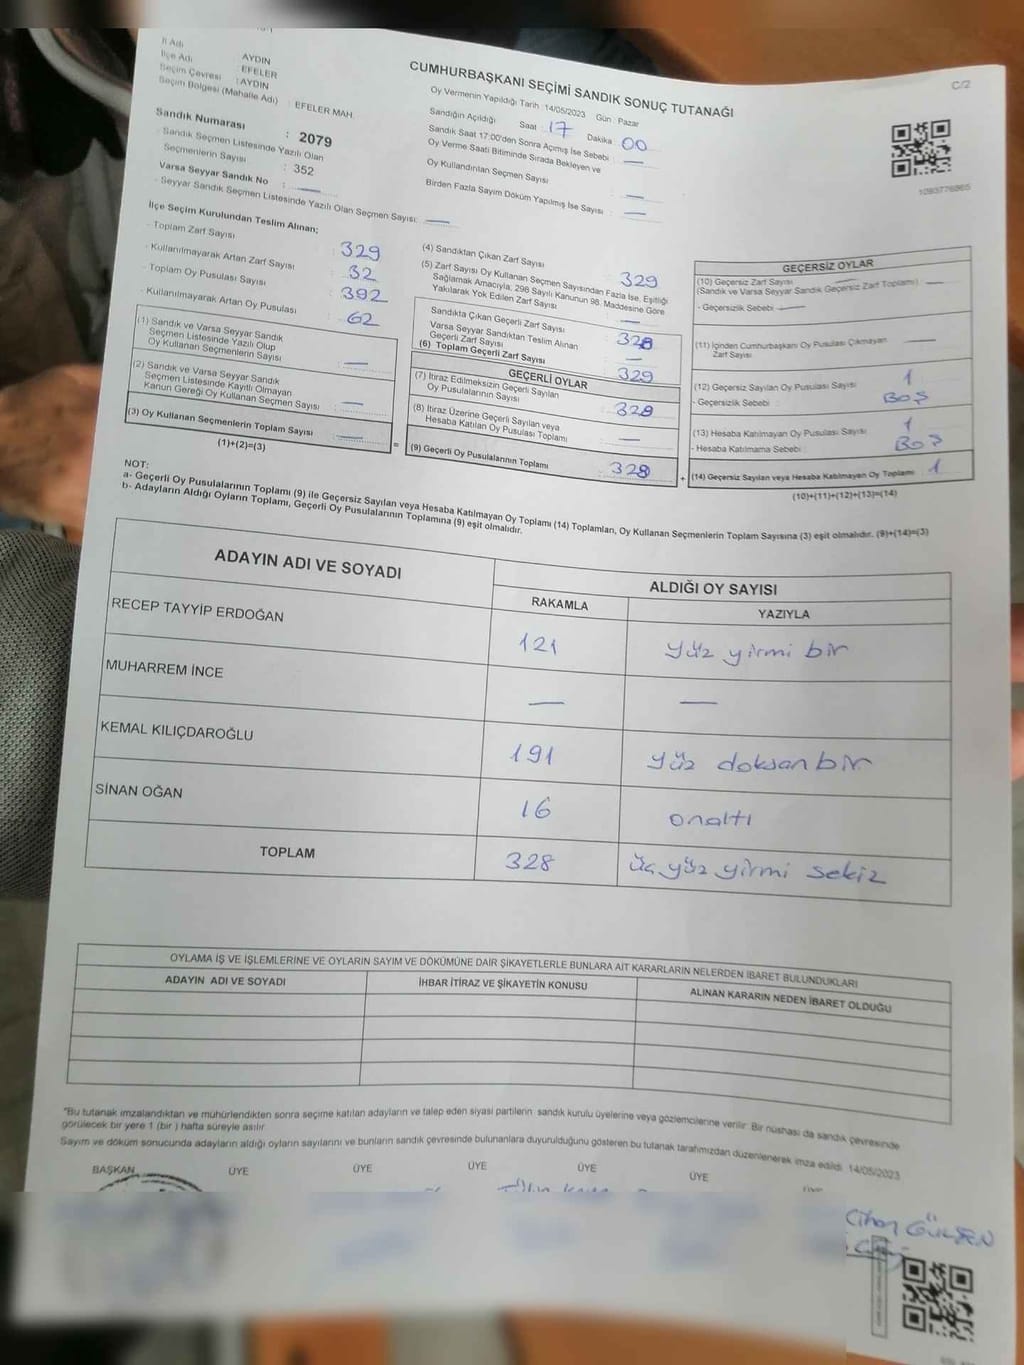 İl Adı : AYDIN
İlçe Adı : EFELER
Seçim Çevresi : AYDIN
Seçim Bölgesi (Mahalle Adı) : EFELER MAH.
Sandık Numarası : 2079
- Sandık Seçmen Listesinde Yazılı Olan
Seçmenlerin Sayısı : 352
Varsa Seyyar Sandık No : —
- Seyyar Sandık Seçmen Listesinde Yazılı Olan Seçmen Sayısı: —
CUMHURBAŞKANI SEÇİMİ SANDIK SONUÇ TUTANAĞI
C/2
Oy Vermenin Yapıldığı Tarih 14/05/2023 Gün : Pazar
Sandığın Açıldığı Saat : 17 Dakika : 00
Sandık Saat 17:00'den Sonra Açımış İse Sebebi : —
Oy Verme Saati Bitiminde Sırada Bekleyen ve
Oy Kullandırılan Seçmen Sayısı : —
Birden Fazla Sayım Döküm Yapılmış İse Sayısı : —
1093776865
İlçe Seçim Kurulundan Teslim Alınan;
- Toplam Zarf Sayısı : 329
- Kullanılmayarak Artan Zarf Sayısı : 32
- Toplam Oy Pusulası Sayısı : 392
- Kullanılmayarak Artan Oy Pusulası : 62
(1) Sandık ve Varsa Seyyar Sandık
Seçmen Listesinde Yazılı Olup
Oy Kullanan Seçmenlerin Sayısı : —
(2) Sandık ve Varsa Seyyar Sandık
Seçmen Listesinde Kayıtlı Olmayan
Kanun Gereği Oy Kullanan Seçmen Sayısı : —
(3) Oy Kullanan Seçmenlerin Toplam Sayısı : —
(1)+(2)=(3)
=
(4) Sandıktan Çıkan Zarf Sayısı : 329
(5) Zarf Sayısı Oy Kullanan Seçmen Sayısından Fazla İse, Eşitliği
Sağlamak Amacıyla; 298 Sayılı Kanunun 98. Maddesine Göre
Yakılarak Yok Edilen Zarf Sayısı : —
Sandıkta Çıkan Geçerli Zarf Sayısı : 328
Varsa Seyyar Sandıktan Teslim Alınan
Geçerli Zarf Sayısı : —
(6) Toplam Geçerli Zarf Sayısı : 329
GEÇERLİ OYLAR
(7) İtiraz Edilmeksizin Geçerli Sayılan
Oy Pusulalarının Sayısı : 328
(8) İtiraz Üzerine Geçerli Sayılan veya
Hesaba Katılan Oy Pusulası Toplamı : —
(9) Geçerli Oy Pusulalarının Toplamı : 328
+
GEÇERSİZ OYLAR
(10) Geçersiz Zarf Sayısı : —
(Sandık ve Varsa Seyyar Sandık Geçersiz Zarf Toplamı) : —
- Geçersizlik Sebebi : —
(11) İçinden Cumhurbaşkanı Oy Pusulası Çıkmayan
Zarf Sayısı : —
(12) Geçersiz Sayılan Oy Pusulası Sayısı : 1
- Geçersizlik Sebebi : BOŞ
(13) Hesaba Katılmayan Oy Pusulası Sayısı : 1
- Hesaba Katılmama Sebebi : BOŞ
(14) Geçersiz Sayılan veya Hesaba Katılmayan Oy Toplamı : 1
(10)+(11)+(12)+(13)=(14)
NOT:
a- Geçerli Oy Pusulalarının Toplamı (9) ile Geçersiz Sayılan veya Hesaba Katılmayan Oy Toplamı (14) Toplamları, Oy Kullanan Seçmenlerin Toplam Sayısına (3) eşit olmalıdır. (9)+(14)=(3)
b- Adayların Aldığı Oyların Toplamı, Geçerli Oy Pusulalarının Toplamına (9) eşit olmalıdır.
ADAYIN ADI VE SOYADI
ALDIĞI OY SAYISI
RAKAMLA YAZIYLA
RECEP TAYYİP ERDOĞAN 121 yüz yirmi bir
MUHARREM İNCE — —
KEMAL KILIÇDAROĞLU 191 yüz doksan bir
SİNAN OĞAN 16 onaltı
TOPLAM 328 üç yüz yirmi sekiz
OYLAMA İŞ VE İŞLEMLERİNE VE OYLARIN SAYIM VE DÖKÜMÜNE DAİR ŞİKAYETLERLE BUNLARA AİT KARARLARIN NELERDEN İBARET BULUNDUKLARI
ADAYIN ADI VE SOYADI İHBAR İTİRAZ VE ŞİKAYETİN KONUSU ALINAN KARARIN NEDEN İBARET OLDUĞU
"Bu tutanak imzalandıktan ve mühürlendikten sonra seçime katılan adayların ve talep eden siyasi partilerin sandık kurulu üyelerine veya gözlemcilerine verilir. Bir nüshası da sandık çevresinde
görülecek bir yere 1 (bir ) hafta süreyle asılır.
Sayım ve döküm sonucunda adayların aldığı oyların sayılarını ve bunların sandık çevresinde bulunanlara duyurulduğunu gösteren bu tutanak tarafımızdan düzenlenerek imza edildi. 14/05/2023
BAŞKAN ÜYE ÜYE ÜYE ÜYE ÜYE
Cihan GÜLŞEN